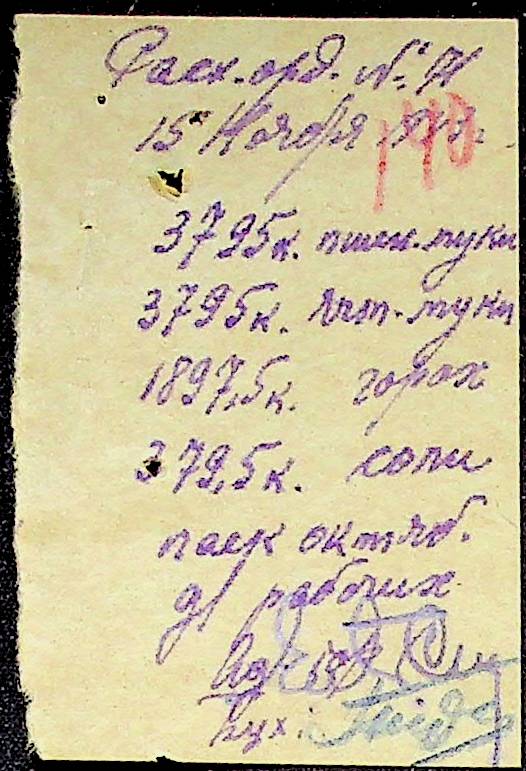 Расх. орд. № 71
15 Ноября
140
3795к. пшен. муки
3795к. ячм. муки
1897,5к. горох
379,5к. соли
паек октяб.
дл рабочих
Бух.